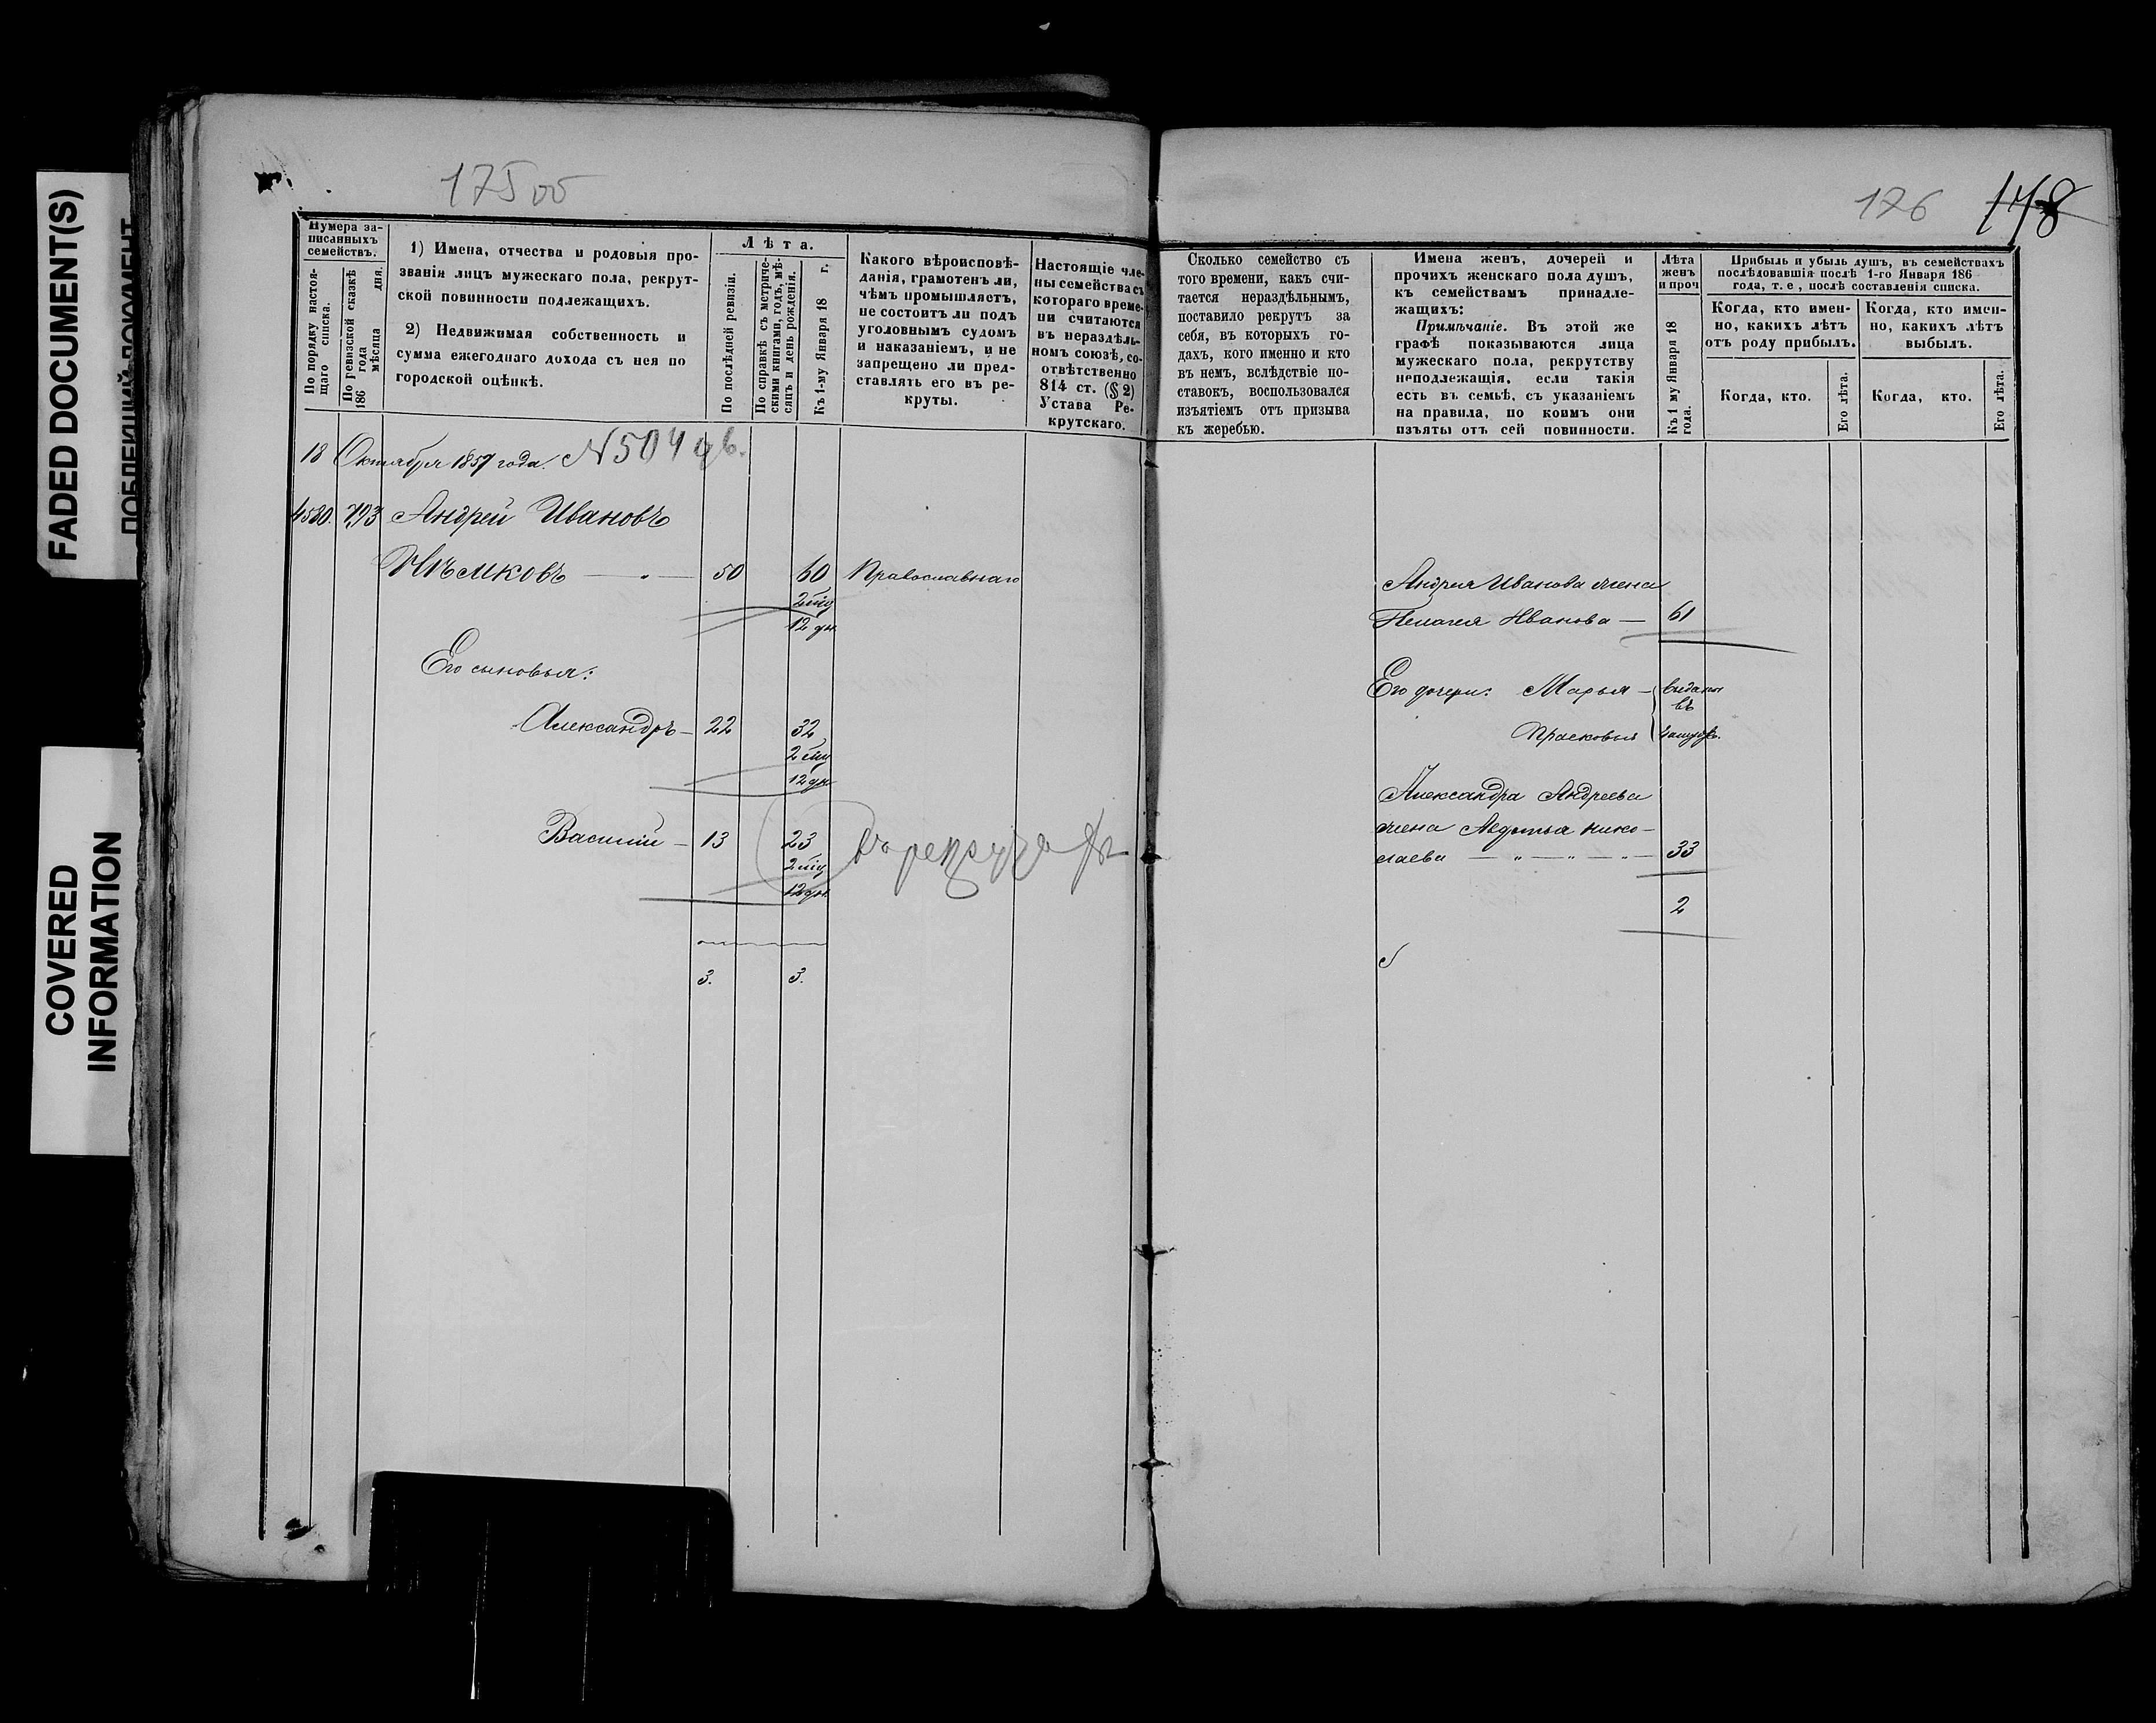 FADED DOCUMENT(S)
COVERED
INFORMATION
175 об
176
178
Нумера за-
писанныхъ
семействъ.
По порядку настоя-
щаго списка.
По ревизской сказкѣ
186 года мѣсяца дня.
1) Имена, отчества и родовыя про-
званія лицъ мужескаго пола, рекрут-
ской повинности подлежащихъ.
2) Недвижимая собственность и
сумма ежегоднаго дохода съ нея по
городской оцѣнкѣ.
Лѣта.
По послѣдней ревизіи.
По справкѣ съ метриче-
скими книгами, годъ, мѣ-
сяцъ и день рожденія.
Къ 1-му Января 18 г.
Какого вѣроисповѣ-
данія, грамотенъ ли,
чѣмъ промышляетъ,
не состоитъ ли подъ
уголовнымъ судомъ
и наказаніемъ, и не
запрещено ли пред-
ставлять его въ ре-
круты.
Настоящіе чле-
ны семейства съ
котораго време-
ни считаются
въ нераздѣль-
номъ союзѣ, со-
отвѣтственно
814 ст. (§ 2)
Устава Ре-
крутскаго.
18 Октября 1857 года. N 504
4520. 793 Андрей Ивановъ
50 60 Православнаго
12 дн.
Его сыновья:
Александръ – 22 32
12 дн.
Василій – 13 23
12 дн.
3. 3.
Сколько семейство съ
того времени, какъ счи-
тается нераздѣльнымъ,
поставило рекрутъ за
себя, въ которыхъ го-
дахъ, кого именно и кто
въ немъ, вслѣдствіе по-
ставокъ, воспользовался
изъятіемъ отъ призыва
къ жеребью.
Имена женъ, дочерей и
прочихъ женскаго пола душъ,
къ семействамъ принадле-
жащихъ:
Примѣчаніе. Въ этой же
графѣ показываются лица
мужескаго пола, рекрутству
неподлежащія, если такія
есть въ семьѣ, съ указаніемъ
на правила, по коимъ они
изъяты отъ сей повинности.
Лѣта
женъ
и проч
Къ 1 му Января 18
года.
Прибыль и убыль душъ, въ семействахъ
послѣдовавшія послѣ 1-го Января 186
года, т. е, послѣ составленія списка.
Когда, кто имен-
но, какихъ лѣтъ
отъ роду прибылъ.
Когда, кто имен-
но, какихъ лѣтъ
выбылъ.
Когда, кто.
Его лѣта.
Когда, кто.
Его лѣта.
Андрея Иванова жена
Пелагея Иванова — 61
Его дочери: Марья – выданы
въ
Прасковья замуж.
Александра Андреева
жена Авдотья Нико-
лаева — „ — „ — „ — 33
2